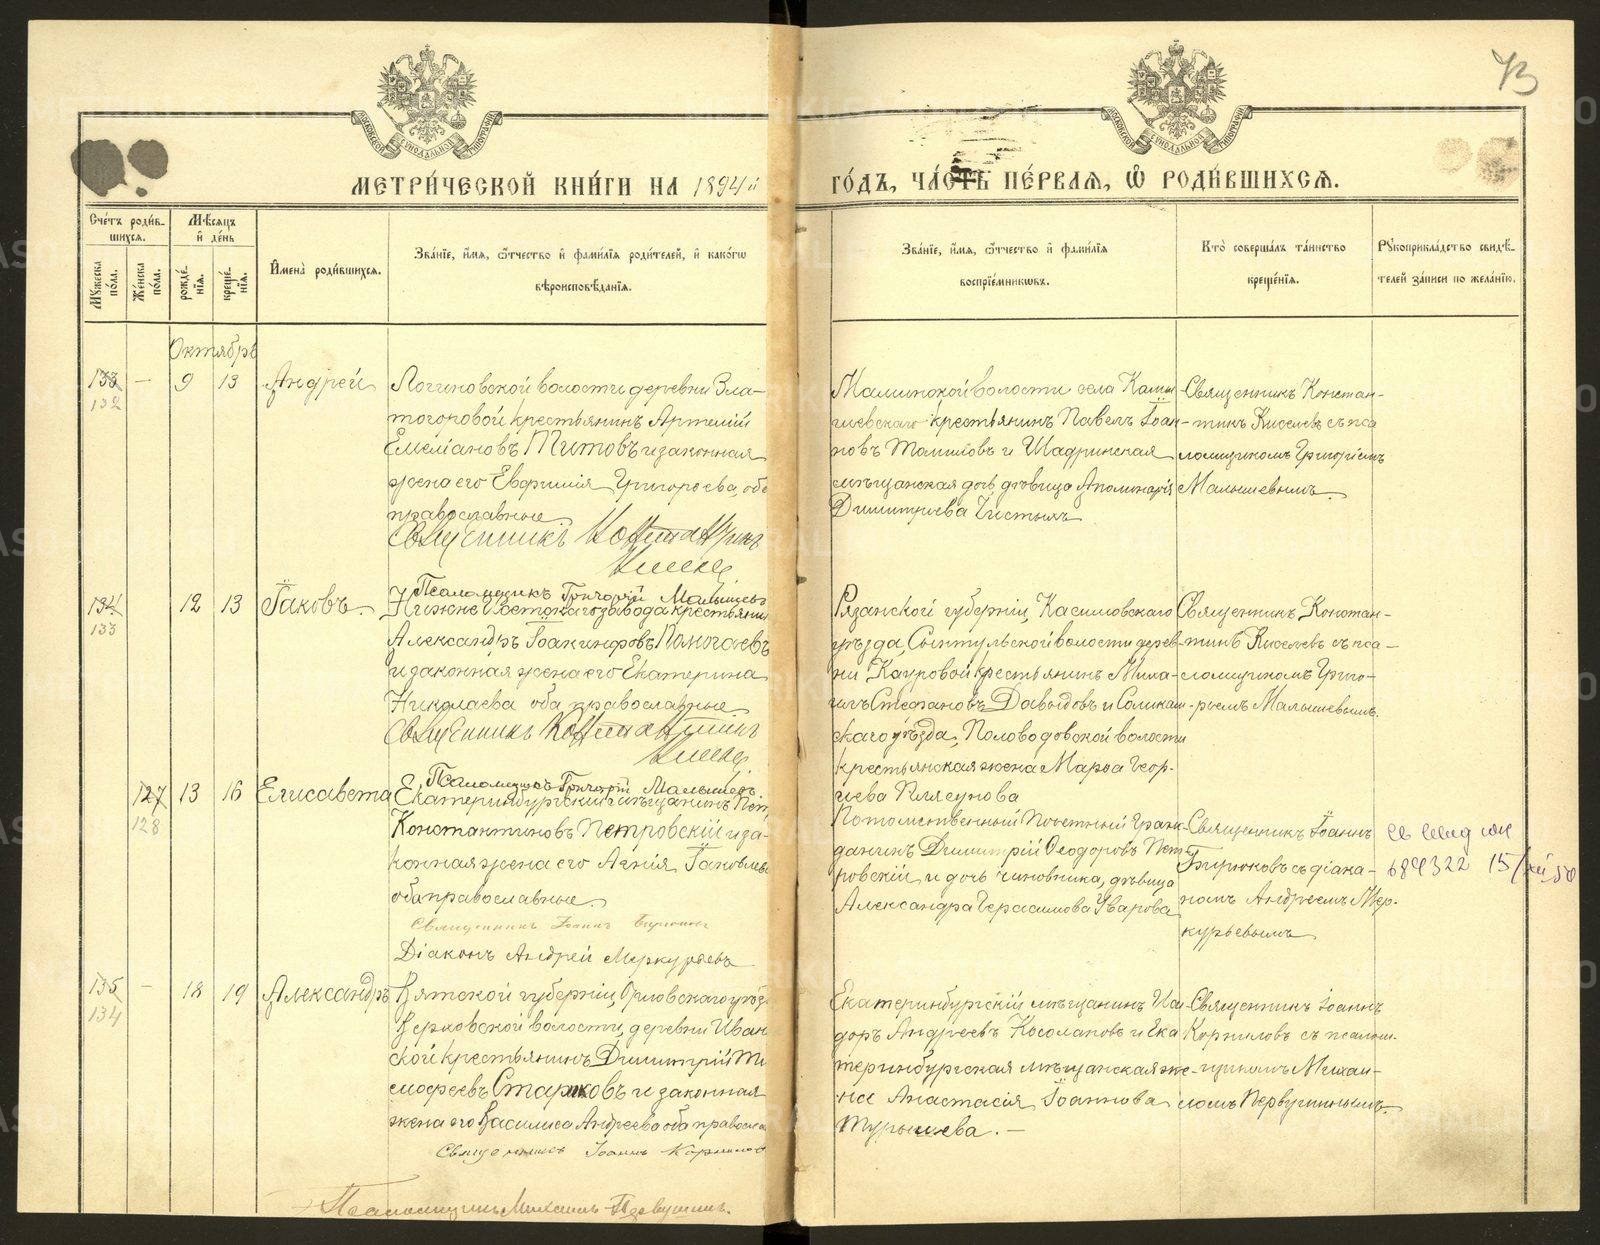 73
МОСКОВСКОЙ СѴНОДАЛЬНОЙ ТИПОГРАФІИ
МОСКОВСКОЙ СѴНОДАЛЬНОЙ ТИПОГРАФІИ
МЕТРИ́ЧЕСКОЙ КНИ́ГИ НА 1894й ГО́ДЪ, ЧА́СТЬ ПЕ́РВАѦ, Ѿ РОДИ́ВШИХСѦ.
Сче́тъ роди́в-
шихся.
Мꙋжеска по́ла.
Же́нска по́ла.
Мѣ́сяцъ
и҆ де́нь
рожде́-
нїя.
креще́-
нїя.
И҆мена̀ роди́вшихся.
Зва́нїе, и҆́мя, ѻ҆́тчество и҆ фами́лїя роди́телей, и҆ како́гѡ
вѣроисповѣ́данїя.
Зва́нїе, и҆́мя, ѻ҆́тчество и҆ фами́лїя
воспрїе́мникѡвъ.
Кто̀ соверша́лъ та́инство
креще́нїя.
Рꙋкоприкла́дство свидѣ́-
телей за́писи по жела́нїю.
Октябрь
133
132
—
9
13
Андрей
Логиновской волости деревни Зла-
тогоровой крестьянинъ Артемій
Емеліановъ Титовъ и законная
жена его Евфимія Григорьева, оба
православные
Священникъ Константинъ
Киселев
Псаломщикъ Григорій Малышевъ
Маминской волости села
крестьянинъ Павелъ Іоан-
новъ Томиловъ и Шадринская
мѣщанская дочь дѣвица Аполинарія
Димитріева Чистыхъ
Священникъ Констан-
тинъ Киселевъ съ пса
ломщикомъ Григоріемъ
Малышевымъ.
134
133
12
13
Іаковъ.
Нижне Исетскаго завода крестьянинъ
Александръ Іоакинфовъ Помогаевъ
и законная жена его Екатерина
Николаева оба православные
Священникъ Константинъ
Киселев
Псаломщикъ Григорій Малышевъ.
Рязанской губерніи, Касимовскаго
уѣзда, Сынтульской волости дерев-
ни Кауровой крестьянинъ Миха-
илъ Стефановъ Давыдовъ и Соликам-
скаго уѣзда, Половодовской волости
крестьянская жена Марѳа Геор-
гіева Плясунова
Священникъ Констан-
тинъ Киселевъ съ пса-
ломщикомъ Григо-
рьемъ Малышевымъ.
127
128
13
16
Елисавета
Екатеринбургскій мѣщанинъ Петръ
Константиновъ Петровскій и за-
конная жена его Агнія Іаковлева
оба православные.
Священникъ Іоаннъ Бирюковъ
Діаконъ Андрей Меркурьевъ
Потомственный Почетный Граж-
данинъ Димитрій Ѳеодоровъ Пет-
ровскій и дочь чиновника, дѣвица
Александра Герасимова Уварова
Священникъ Іоаннъ
Бирюковъ съ діако-
номъ Андреемъ Мер-
курьевымъ
684322 15/
135
134
—
18
19
Александръ
Вятской губерніи, Орловскаго уѣзда
Верховской волости, деревни Иван
ской крестьянинъ Димитрій Ти
моѳеевъ Стариковъ и законная
жена его Василиса Андреева оба православ
Священникъ Іоаннъ Корниловъ
Псаломщикъ Михаилъ Первушинъ.
Екатеринбургскій мѣщанинъ Иси-
доръ Андреевъ Косолаповъ и Ека
теринбургская мѣщанская же-
на Анастасія Іоаннова
Турышева. —
Священникъ Іоаннъ
Корниловъ съ псалом-
щикомъ Михаи-
ломъ Первушинымъ.